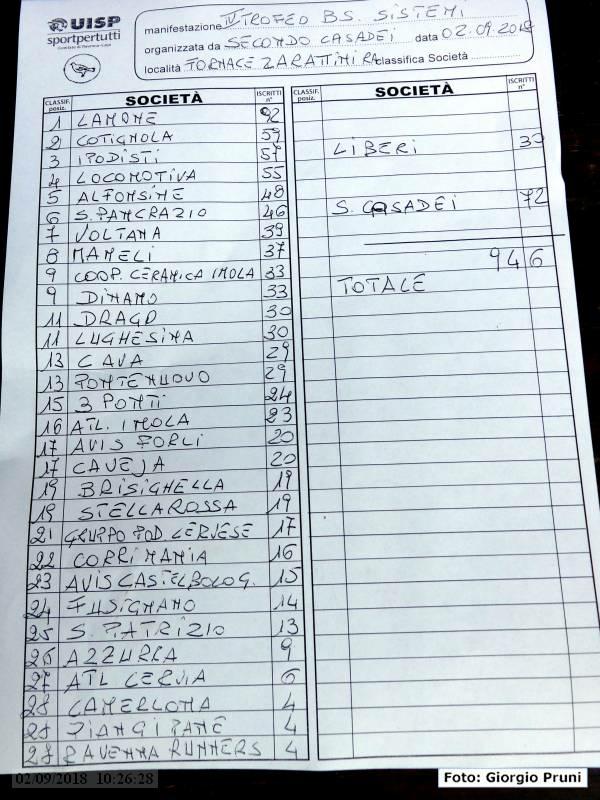 UISP
sportpertutti
manifestazione IV TROFEO BS. SISTEMI
organizzata da SECONDO CASADEI data 02.09.2018
località FORNACE ZARATTINI RA classifica Società
CLASSIF. posiz. SOCIETÀ ISCRITTI n°
1 LAMONE 92
2 COTIGNOLA 59
3 IPODISTI 57
4 LOCOMOTIVA 55
5 ALFONSINE 48
6 S. PANCRAZIO 46
7 VOLTANA 39
8 MAMELI 37
9 COOP. CERAMICA IMOLA 33
9 DINAMO 33
11 DRAGO 30
11 LUGHESINA 30
13 CAVA 29
13 PONTENUOVO 29
15 3 PONTI 24
16 ATL. IMOLA 23
17 AVIS FORLI 20
17 CAVEJA 20
19 BRISIGHELLA 19
19 STELLAROSSA 19
21 GRUPPO POD. CERVESE 17
22 CORRIMANIA 16
23 AVIS CASTELBOLOG. 15
24 FUSIGNANO 14
25 S. PATRIZIO 13
26 AZZURRA 9
27 ATL CERVIA 6
28 CAMERLONA 4
28 PIANGIPANE 4
28 RAVENNA RUNNERS 4
CLASSIF. posiz. SOCIETÀ ISCRITTI n°
LIBERI
S. CASADEI 72
946
TOTALE
02/09/2018 10:26:28
Foto: Giorgio Pruni